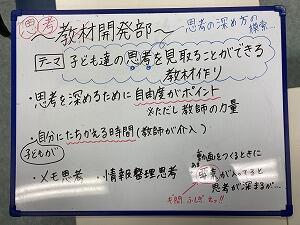 思考
～教材開発部～
思考の深め方の模索…
テーマ 子ども達の思考を見取ることができる
教材作り
・思考を深めるために自由度がポイント
※ただし教師の力量
・自分にたちかえる時間(教師が介入)
子どもが
・メモ思考 ・情報整理思考
動画をつくるときに
が入ってると
思考が深まるが…
ギ問 ふしぎ